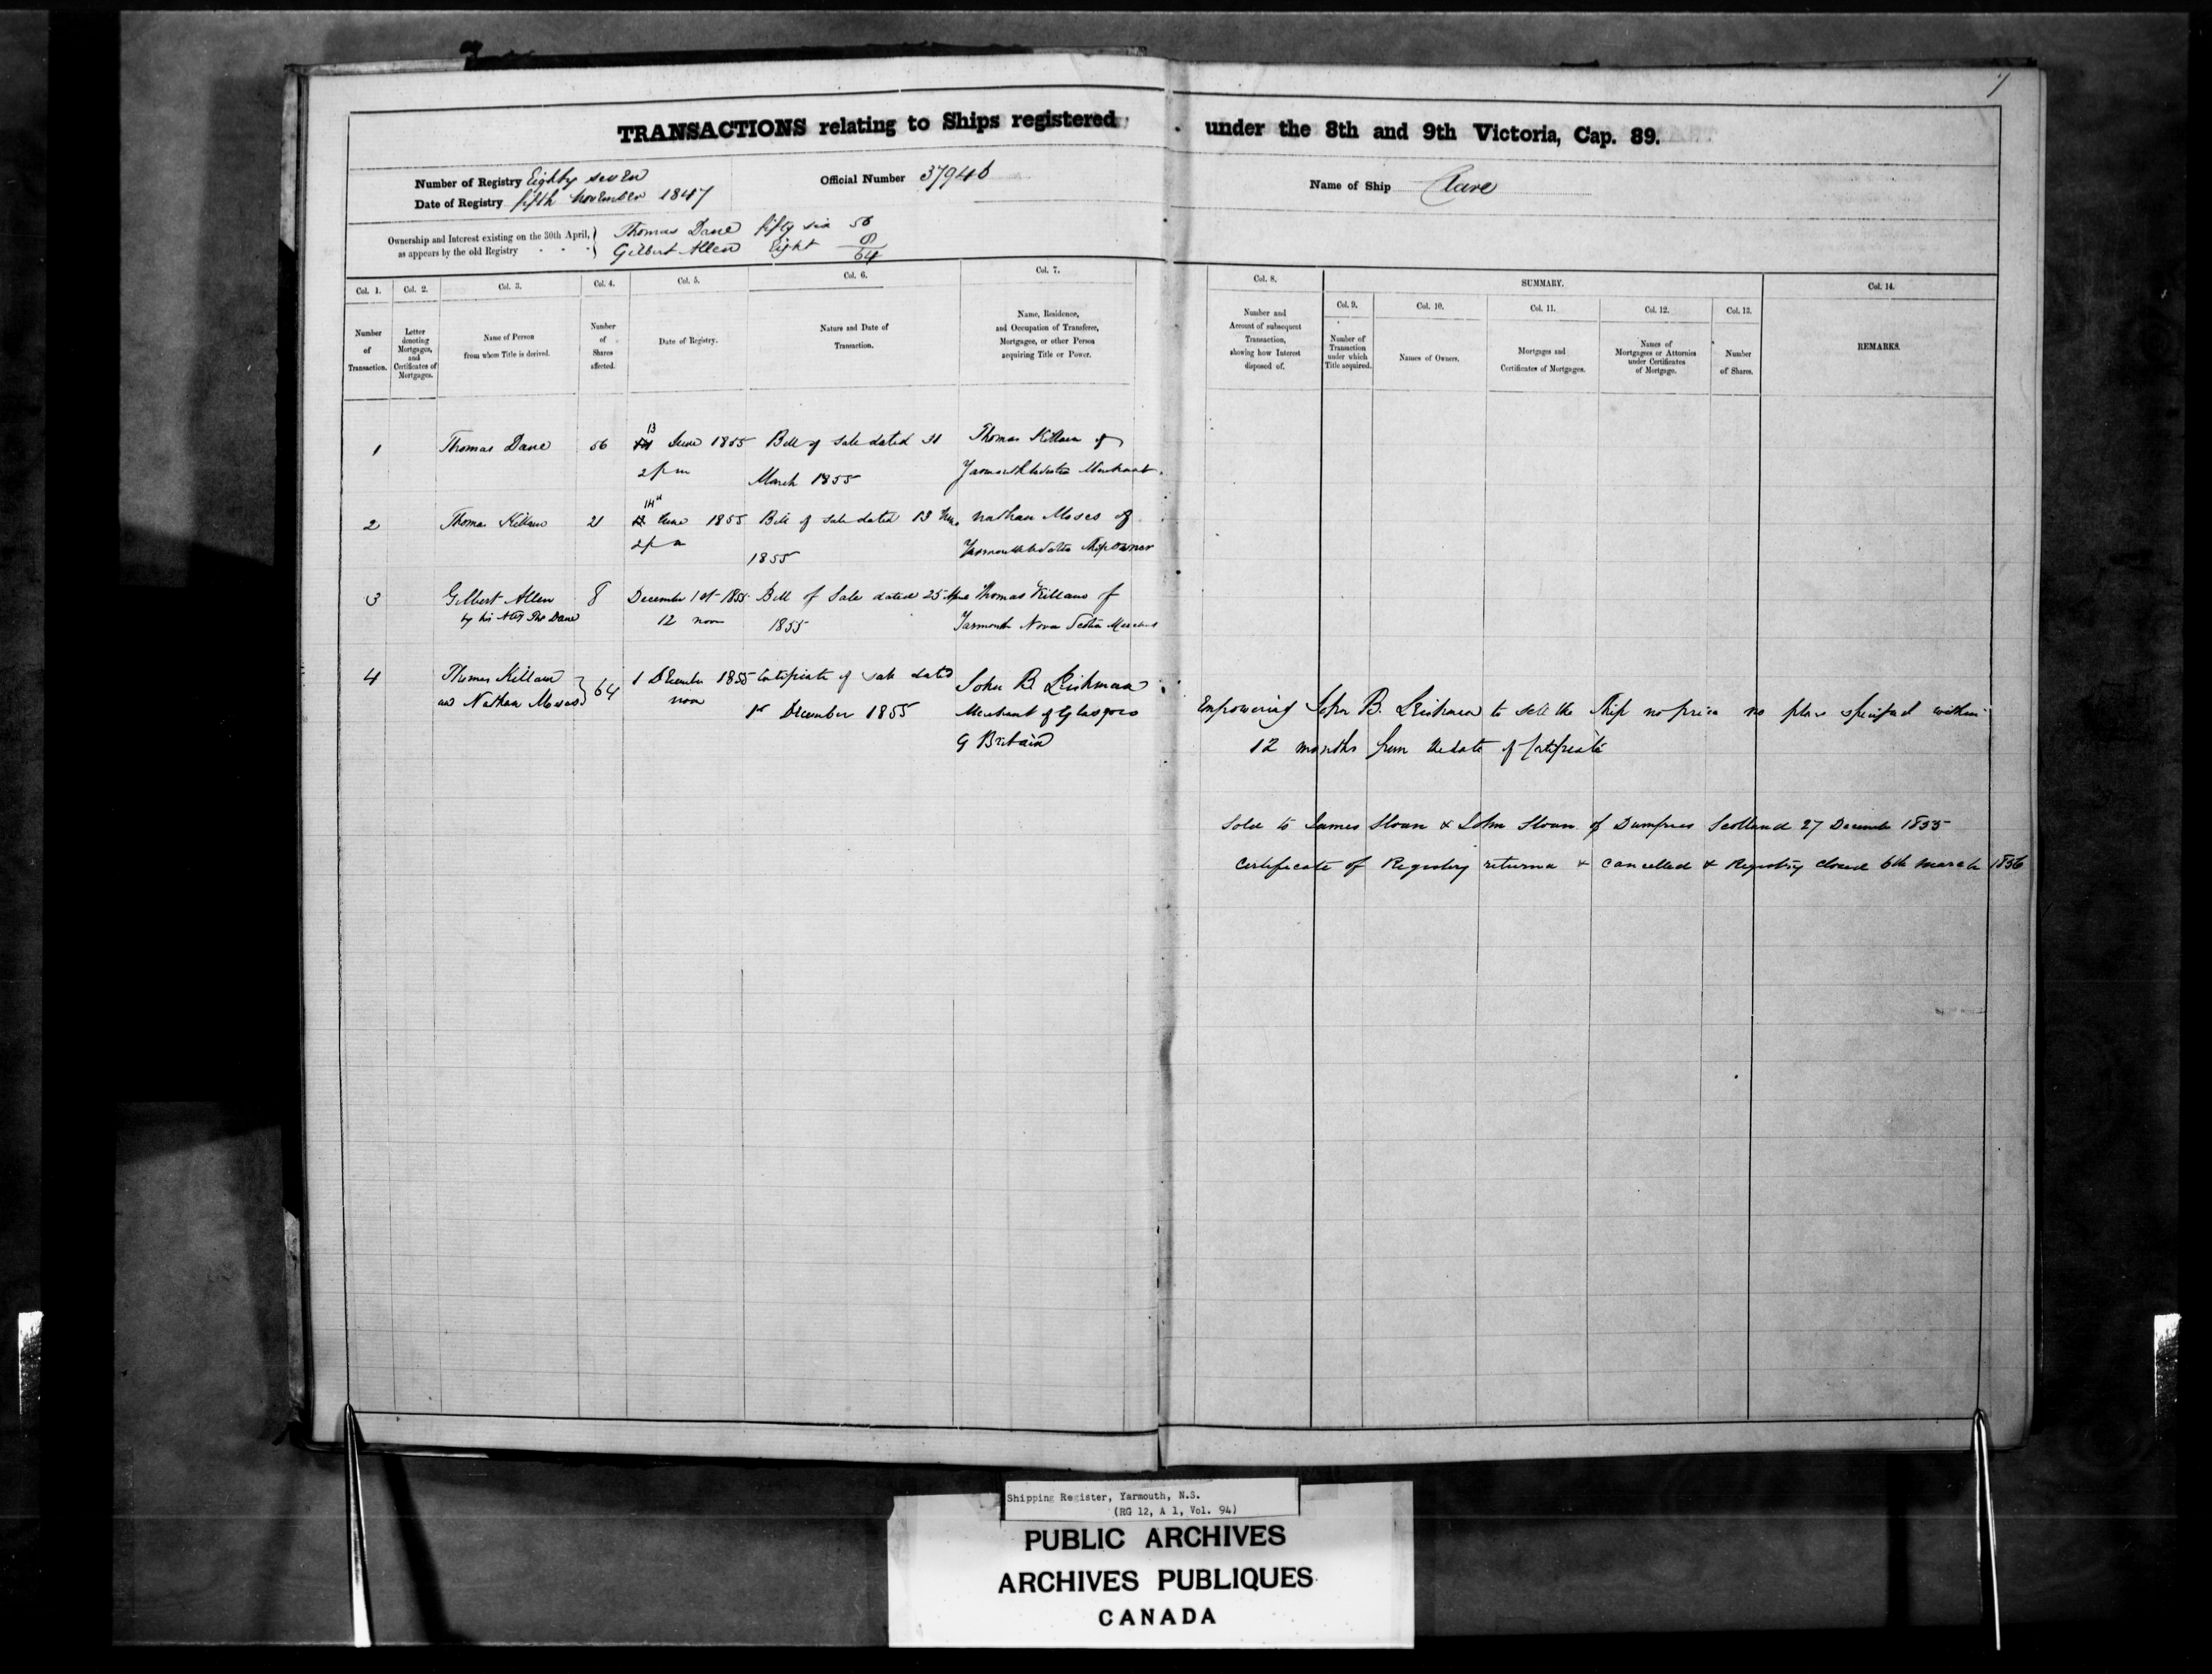 7
TRANSACTIONS relating to Ships registered under the 8th and 9th Victoria, Cap. 89.
Number of Registry Eighty seven
Date of Registry fifth November 1847
Official Number 37940
Name of Ship Clare
Ownership and Interest existing on the 30th April,
as appears by the old Registry
Thomas Dane fifty six 56
Gilbert Allen Eight 8
64
Col. 1.
Number
of
Transaction.
Col. 2.
Letter
denoting
Mortgages,
and
Certificates of
Mortgages.
Col. 3.
Name of Person
from whom Title is derived.
Col. 4.
Number
of
Shares
affected.
Col. 5.
Date of Registry.
Col. 6.
Nature and Date of
Transaction.
Col. 7.
Name, Residence,
and Occupation of Transferee,
Mortgagee, or other Person
acquiring Title or Power.
Col. 8.
Number and
Account of subsequent
Transaction,
showing how Interest
disposed of.
SUMMARY.
Col. 9.
Number of
Transaction
under which
Title acquired.
Col. 10.
Names of Owners.
Col. 11.
Mortgages and
Certificates of Mortgages.
Col. 12.
Names of
Mortgagees or Attornies
under Certificates
of Mortgage.
Col. 13.
Number
of Shares.
Col. 14.
REMARKS.
1 Thomas Dane 56 13 June 1855 Bill of Sale dated 31 Thomas Killam of
2 pm March 1855 Yarmouth Merchant
2 Thomas Killam 21 14th June 1855 Bill of Sale dated 13 June Nathan Moses of
2 pm 1855 Yarmouth Ship owner
3 Gilbert Allen 8 December 1st 1855 Bill of Sale dated 25 Thomas Killam of
by his Atty Thos Dane 12 noon 1855 Yarmouth Nova Scotia Merchant
4 Thomas Killam
and Nathan Moses } 64 1 December 1855 Certificate of Sale dated John B Leishman
noon 1st December 1855 Merchant of Glasgow
G Britain
Empowering John B. Leishman to sell the Ship no price no place specified within
12 months from the date of Certificate
Sold to James Sloan & John Sloan of Dumfries Scotland 27 December 1855
Certificate of Registry returned & cancelled & Registry closed 6th March 1856
Shipping Register, Yarmouth, N.S.
(RG 12, A 1, Vol. 94)
PUBLIC ARCHIVES
ARCHIVES PUBLIQUES
CANADA